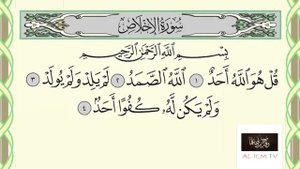 سُورَةُ الإِخْلَاصِ
بِسْمِ اللَّهِ الرَّحْمَٰنِ الرَّحِيمِ
قُلْ هُوَ اللَّهُ أَحَدٌ ١ اللَّهُ الصَّمَدُ ٢ لَمْ يَلِدْ وَلَمْ يُولَدْ ٣
وَلَمْ يَكُن لَّهُۥ كُفُوًا أَحَدٌۢ ٤
AL-ILM TV